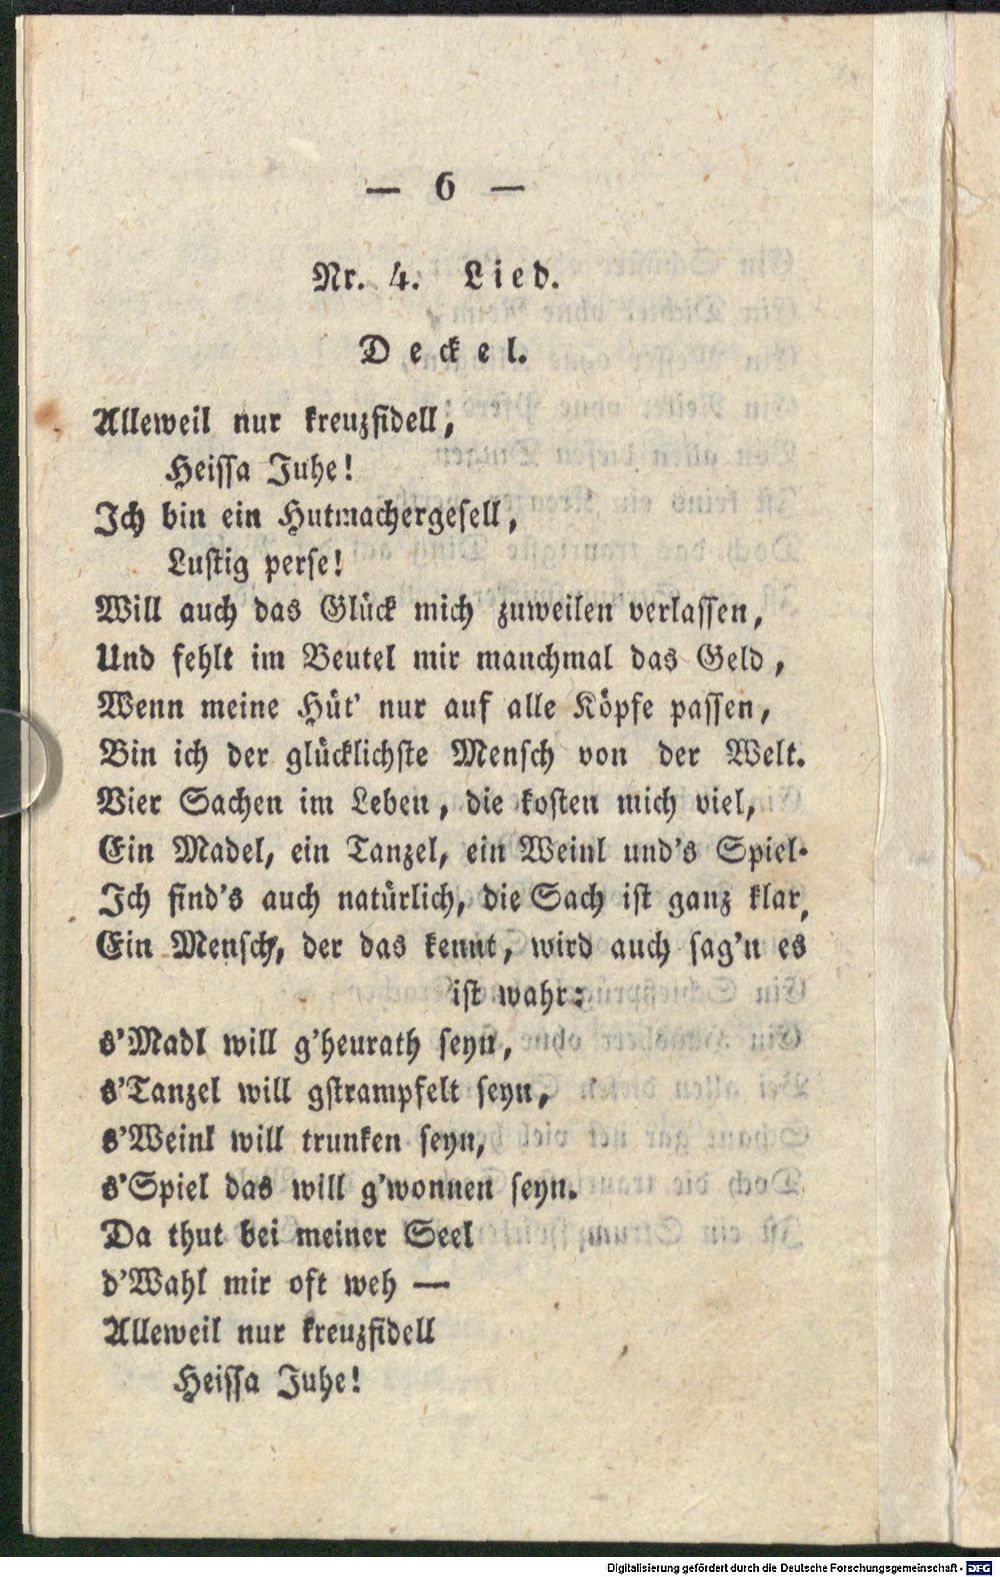 — 6 —
Nr. 4. Lied.
Deckel.
Alleweil nur kreuzfidell,
Heissa Juhe!
Ich bin ein Hutmachergesell,
Lustig perse!
Will auch das Glück mich zuweilen verlassen,
Und fehlt im Beutel mir manchmal das Geld,
Wenn meine Hüt' nur auf alle Köpfe passen,
Bin ich der glücklichste Mensch von der Welt.
Vier Sachen im Leben, die kosten mich viel,
Ein Madel, ein Tanzel, ein Weinl und's Spiel.
Ich find's auch natürlich, die Sach ist ganz klar,
Ein Mensch, der das kennt, wird auch sag'n es
ist wahr:
s'Madl will g'heurath seyn,
s'Tanzel will gstrampfelt seyn,
s'Weinl will trunken seyn,
s'Spiel das will g'wonnen seyn.
Da thut bei meiner Seel
d'Wahl mir oft weh —
Alleweil nur kreuzfidell
Heissa Juhe!
Digitalisierung gefördert durch die Deutsche Forschungsgemeinschaft - DFG